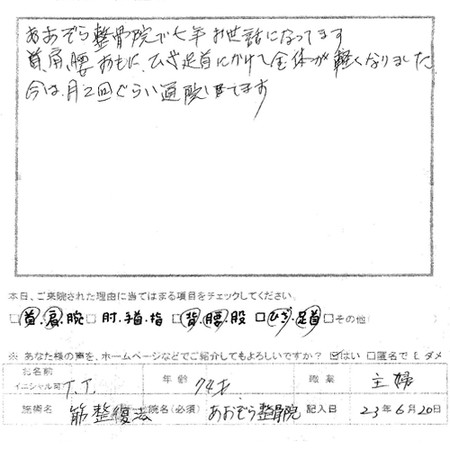 あおぞら整骨院で七年お世話になってます
首、肩、腰おもに、ひざ足首にかけて全体が軽くなりました
今は、月2回ぐらい通院してます
本日、ご来院された理由に当てはまる項目をチェックしてください。
□首・肩・腕 □肘・手首・指 □背・腰・股 □ひざ・足首 □その他(
※ あなた様の声を、ホームページなどでご紹介してもよろしいですか? ☑はい □匿名で
お名前 イニシャル可 T.T. 年齢 74才 職業 主婦
施術名 筋整復法 院名(必須) あおぞら整骨院 記入日 23年6月20日